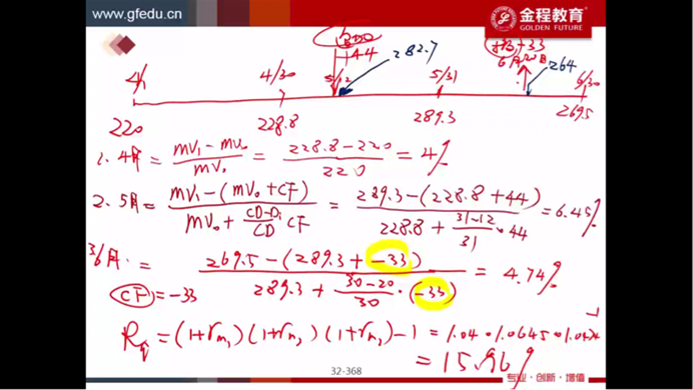 www.gfedu.cn
金程教育
GOLDEN FUTURE
+44
282.7
+33
264
4/1
4/30
5/12
5/31
6月20日
6/30
220
228.8
289.3
269.5
1. 4月 = (MV₁ - MV₀) / MV₀ = (228.8 - 220) / 220 = 4%
2. 5月 = (MV₁ - (MV₀ + CF)) / (MV₀ + (CD-Di)/CD CF) = (289.3 - (228.8 + 44)) / (228.8 + (31-12)/31 · 44) = 6.45%
3/6月 = (269.5 - (289.3 + -33)) / (289.3 + (30-20)/30 · (-33)) = 4.74%
CF = -33
Rq = (1+rm₁)(1+rm₂)(1+rm₃) - 1 = 1.04 · 1.0645 · 1.0474 - 1
= 15.96%
32-368
专业·创新·增值